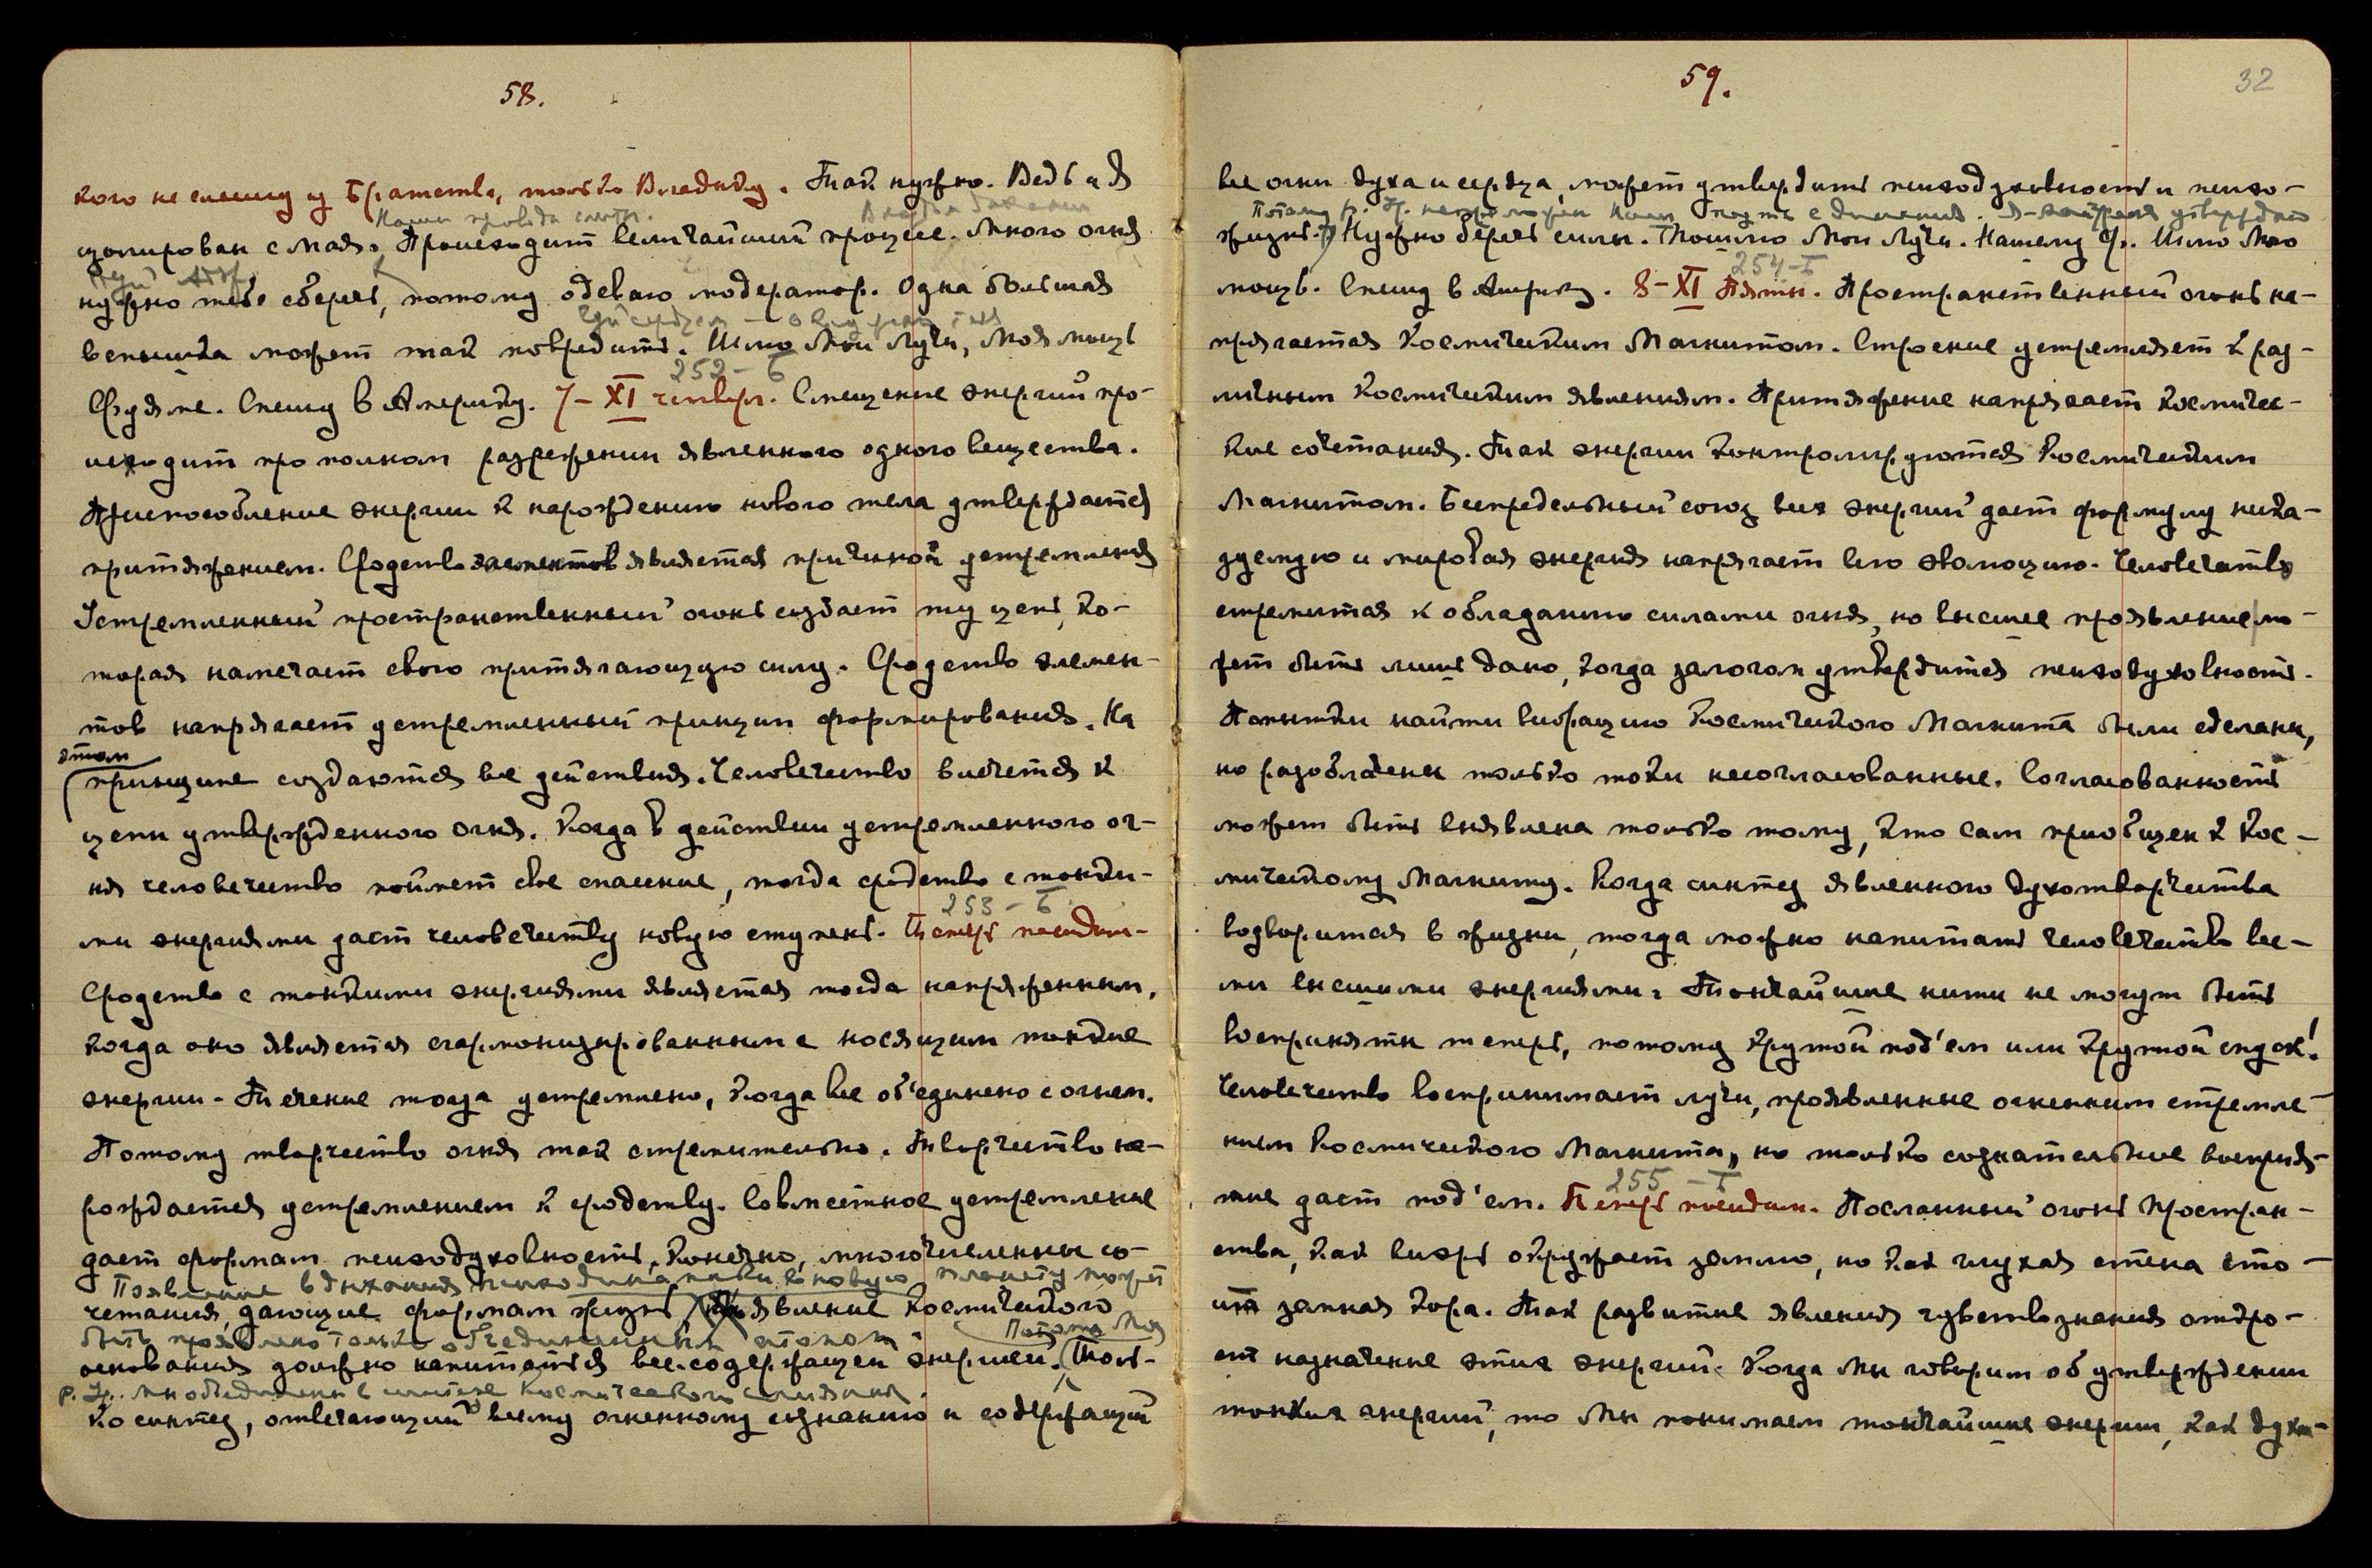 58.
кого не слышу из Братства, только Владыку. Так нужно. Ведь и Я
Наши провода слиты.
изолирован с Мая. Происходит величайший процесс. Много огня
нужно тебе сберечь, потому одеваю модератор. Одна большая
вспышка может так повредить. Шлю Мои Лучи, Моя мощь
252 - Б
Спешу в Америку. 7 - XI четверг. Смещение энергий про-
исходит при полном разрежении явленного одного вещества.
Приспособление энергии к нарождению нового тела утверждается
притяжением. Сродство элементов является причиной устремления
Устремленный пространственный огонь создает ту цепь, ко-
торая намечает свою притягающую силу. Сродство элемен-
тов напрягает устремленный принцип формирования. На
этом
принципе создаются все действия. Человечество влечется к
цепи утвержденного огня. Когда в действии устремленного ог-
ня человечество поймет свое спасение, тогда сродство с тонки-
253 - Б
ми энергиями даст человечеству новую ступень. Теперь последим-
Сродство с тонкими энергиями является тогда напряженным,
когда оно является сгармонизированным с носящим тонкие
энергии. Течение тогда устремлено, когда все об'единено с огнем.
Потому творчество огня так стремительно. Творчество на-
рождается устремлением к сродству. Совместное устремление
дает формам психодуховность. Конечно, многочисленны со-
Появление вдыхания психодинамики в новую планету может
четания, дающие формам жизнь. Проявление Космического
быть проявлено только объединенным атомом.
Потому Моя
основания должно напитаться все содержащей энергией. Толь-
р. Ур. мы объединены в синтезе Космического слияния.
ко синтез, отвечающий всему огненному сознанию и содержащий
59.
32
все огни духа и сердца, может утвердить психодуховность и психо-
Потому р. Ур. утверждаю
жизнь. Нужно беречь силы. Пошлю Мои Лучи. Нашему Ф. Шлю Мою
254 - Б
мощь. Спешу в Америку. 8 - XI Пятн. Пространственный огонь на-
прягается Космическим Магнитом. Строение устремляет к раз-
личным Космическим явлениям. Притяжение напрягает космичес-
кие сочетания. Так энергии контролируются Космическим
Магнитом. Беспредельный союз всех энергий дает формулу неска-
зуемую и мировая энергия напрягает всю эволюцию. Человечество
стремится к обладанию силами огня, но высшее проявление мо-
жет быть лишь дано, когда залогом утвердится психодуховность.
Попытки найти вибрацию Космического Магнита были сделаны,
но разоблачены только токи несогласованные. Согласованность
может быть выявлена только тому, кто сам приобщен к Кос-
мическому Магниту. Когда синтез явленного духотворчества
водворится в жизни, тогда можно напитать человечество все-
ми высшими энергиями. Тончайшие нити не могут быть
восприняты теперь, потому крутой под'ем или крутой спуск!
Человечество воспринимает лучи, проявленные огненным стремле-
нием Космического Магнита, но только сознательное восприя-
255 - Б
тие даст под'ем. Теперь последим. Посланный огонь Простран-
ства, как вихрь окружает землю, но как глухая стена сто-
ит земная кора. Так развитие явления чувствознания откро-
ет назначение этих энергий. Когда Мы говорим об утверждении
тонких энергий, то Мы понимаем тончайшие энергии, как духа-